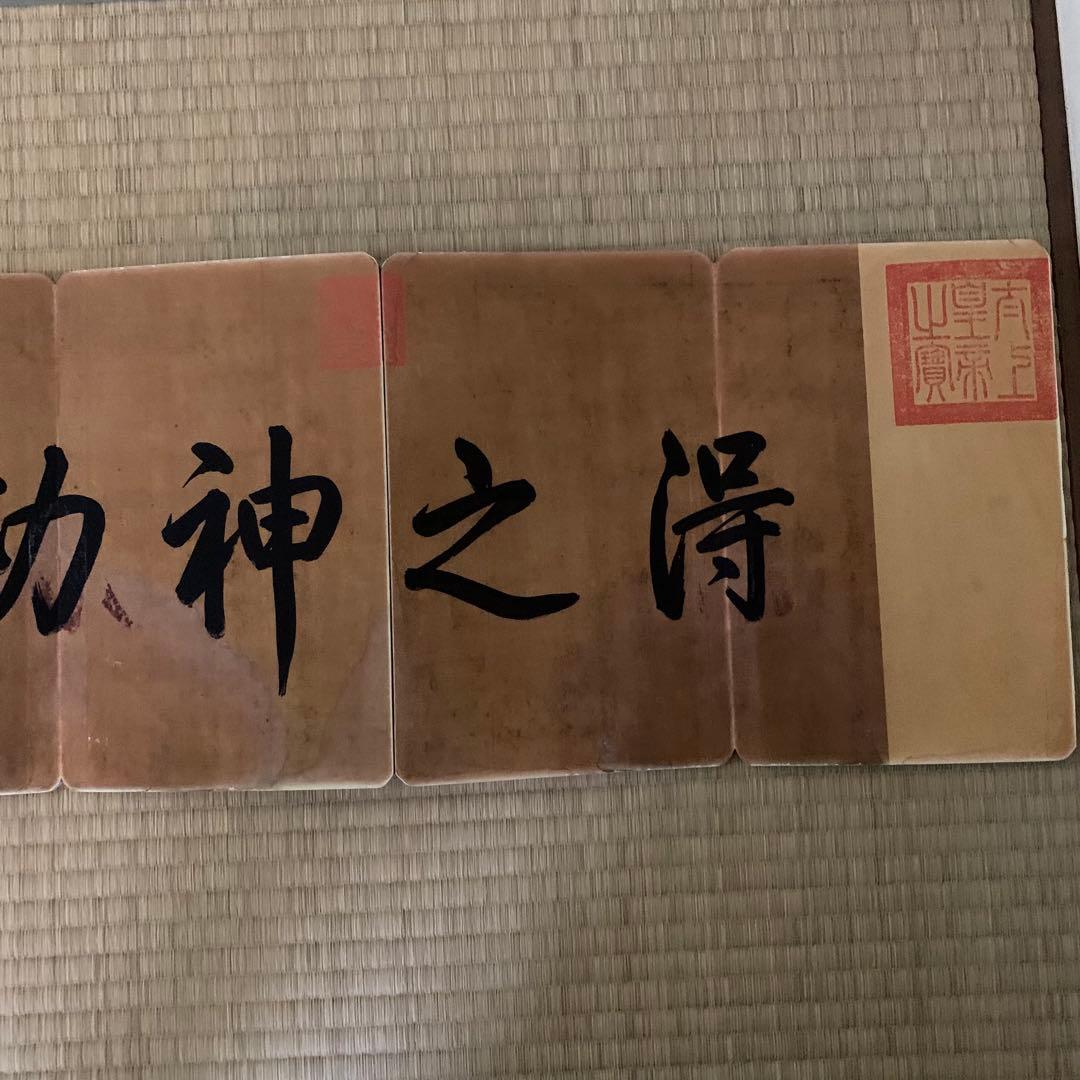 太上皇帝之寶
得之神